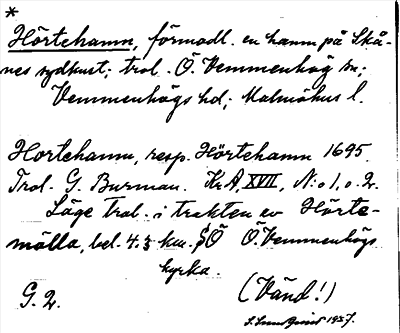 *
Hörtehamn, förmodl. en hamn på Skå-
nes sydkust; trol. Ö. Vemmenhög sn;
Vemmenhögs hd; Malmöhus l.
Hortehamn, resp. Hörtehamn 1695.
Trol. G. Burman. Kr A, XVII, N:o 1, o. 2.
Läge trol. i trakten av Hörte-
mölla, bel. 4.5 km. SÖ Ö. Vemmenhögs
kyrka.
G. 2. (Vänd!)
1937.